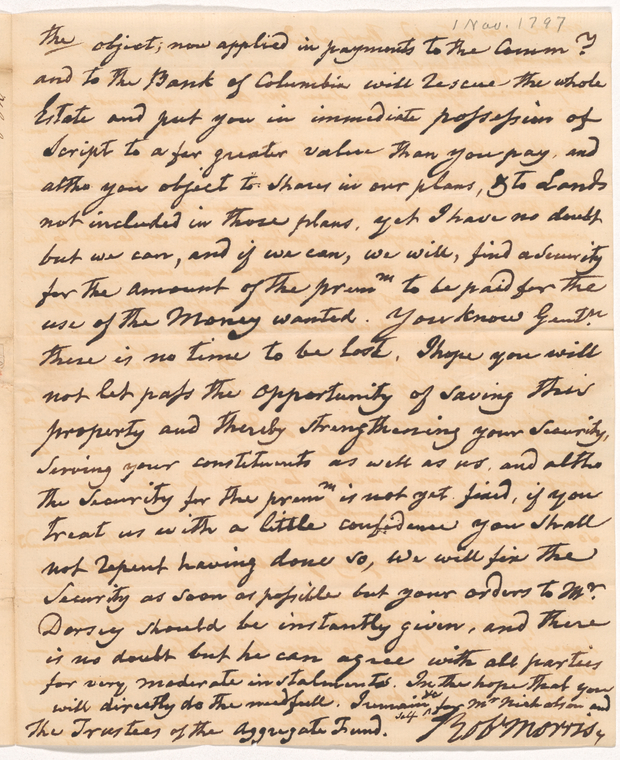 1 Nov. 1797
the object; now applied in payments to the Commrs
and to the Bank of Columbia will rescue the whole
Estate and put you in immediate possession of
Script to a far greater value than you pay, and
altho you object to Shares in our plans, & to Lands
not included in those plans, yet I have no doubt
but we can, and if we can, we will, find a Security
for the amount of the premm to be paid for the
use of the Money wanted. You know Gentn
there is no time to be lost. I hope you will
not let pass the opportunity of saving this
property and thereby strengthening your Security,
serving your constituents as well as us, and altho
the Security for the premm is not yet fixed, if you
treat us with a little confidence you shall
not repent having done so, we will fix the
Security as soon as possible but your orders to Mr.
Dorsey should be instantly given, and there
is no doubt but he can agree with all parties
for very moderate instalments. In the hope that you
will directly do the needfull. I remain &c for Mr Nicholson and
Self
the Trustees of the Aggregate Fund. Robt Morris